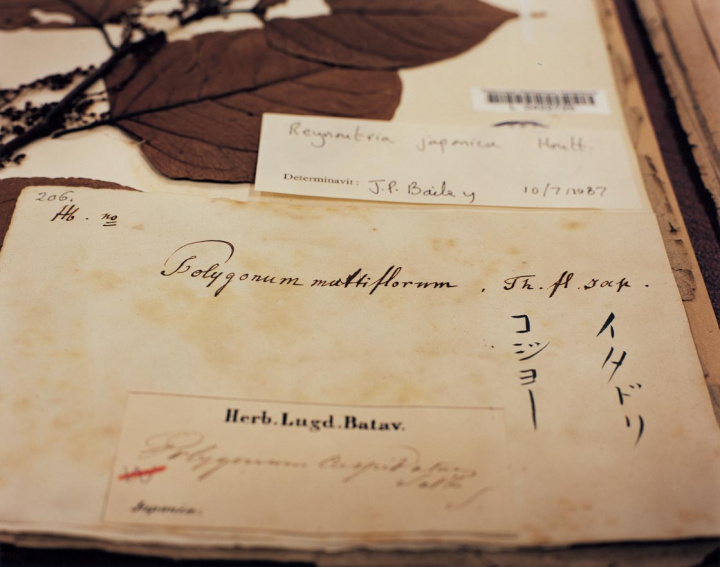 Reynoutria japonica Houtt.
Determinavit: J.P. Bailey 10/7/1987
206.
Hb. no
Polygonum multiflorum. Th. fl. Jap.
イタドリ
コジヨー
Herb. Lugd. Batav.
Polygonum cuspidatum
Japonia.